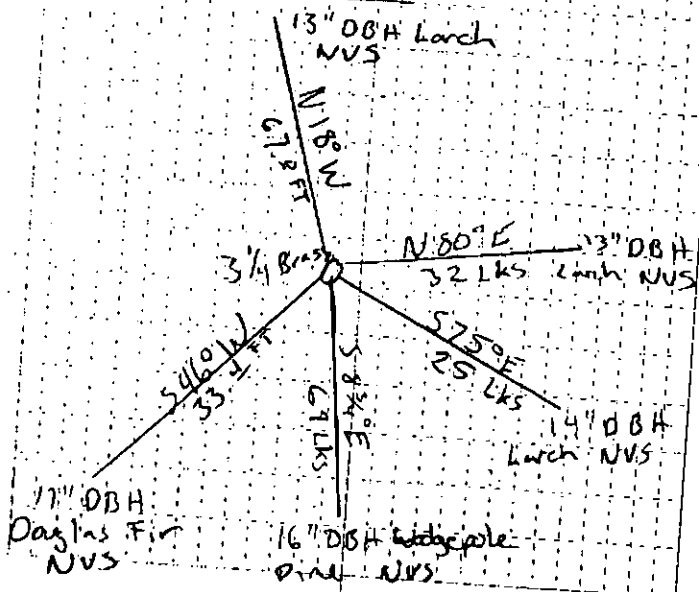 13" DBH Larch
NVS
N 18° W
67.8 FT
3 1/4 Brass
N 80° E
32 Lks
13" DBH
Larch NVS
S 75° E
25 Lks
14" DBH
Larch NVS
S 8 3/4° E
69 Lks
16" DBH Lodgepole
Pine NVS
S 46° W
33.1 FT
11" DBH
Douglas Fir
NVS